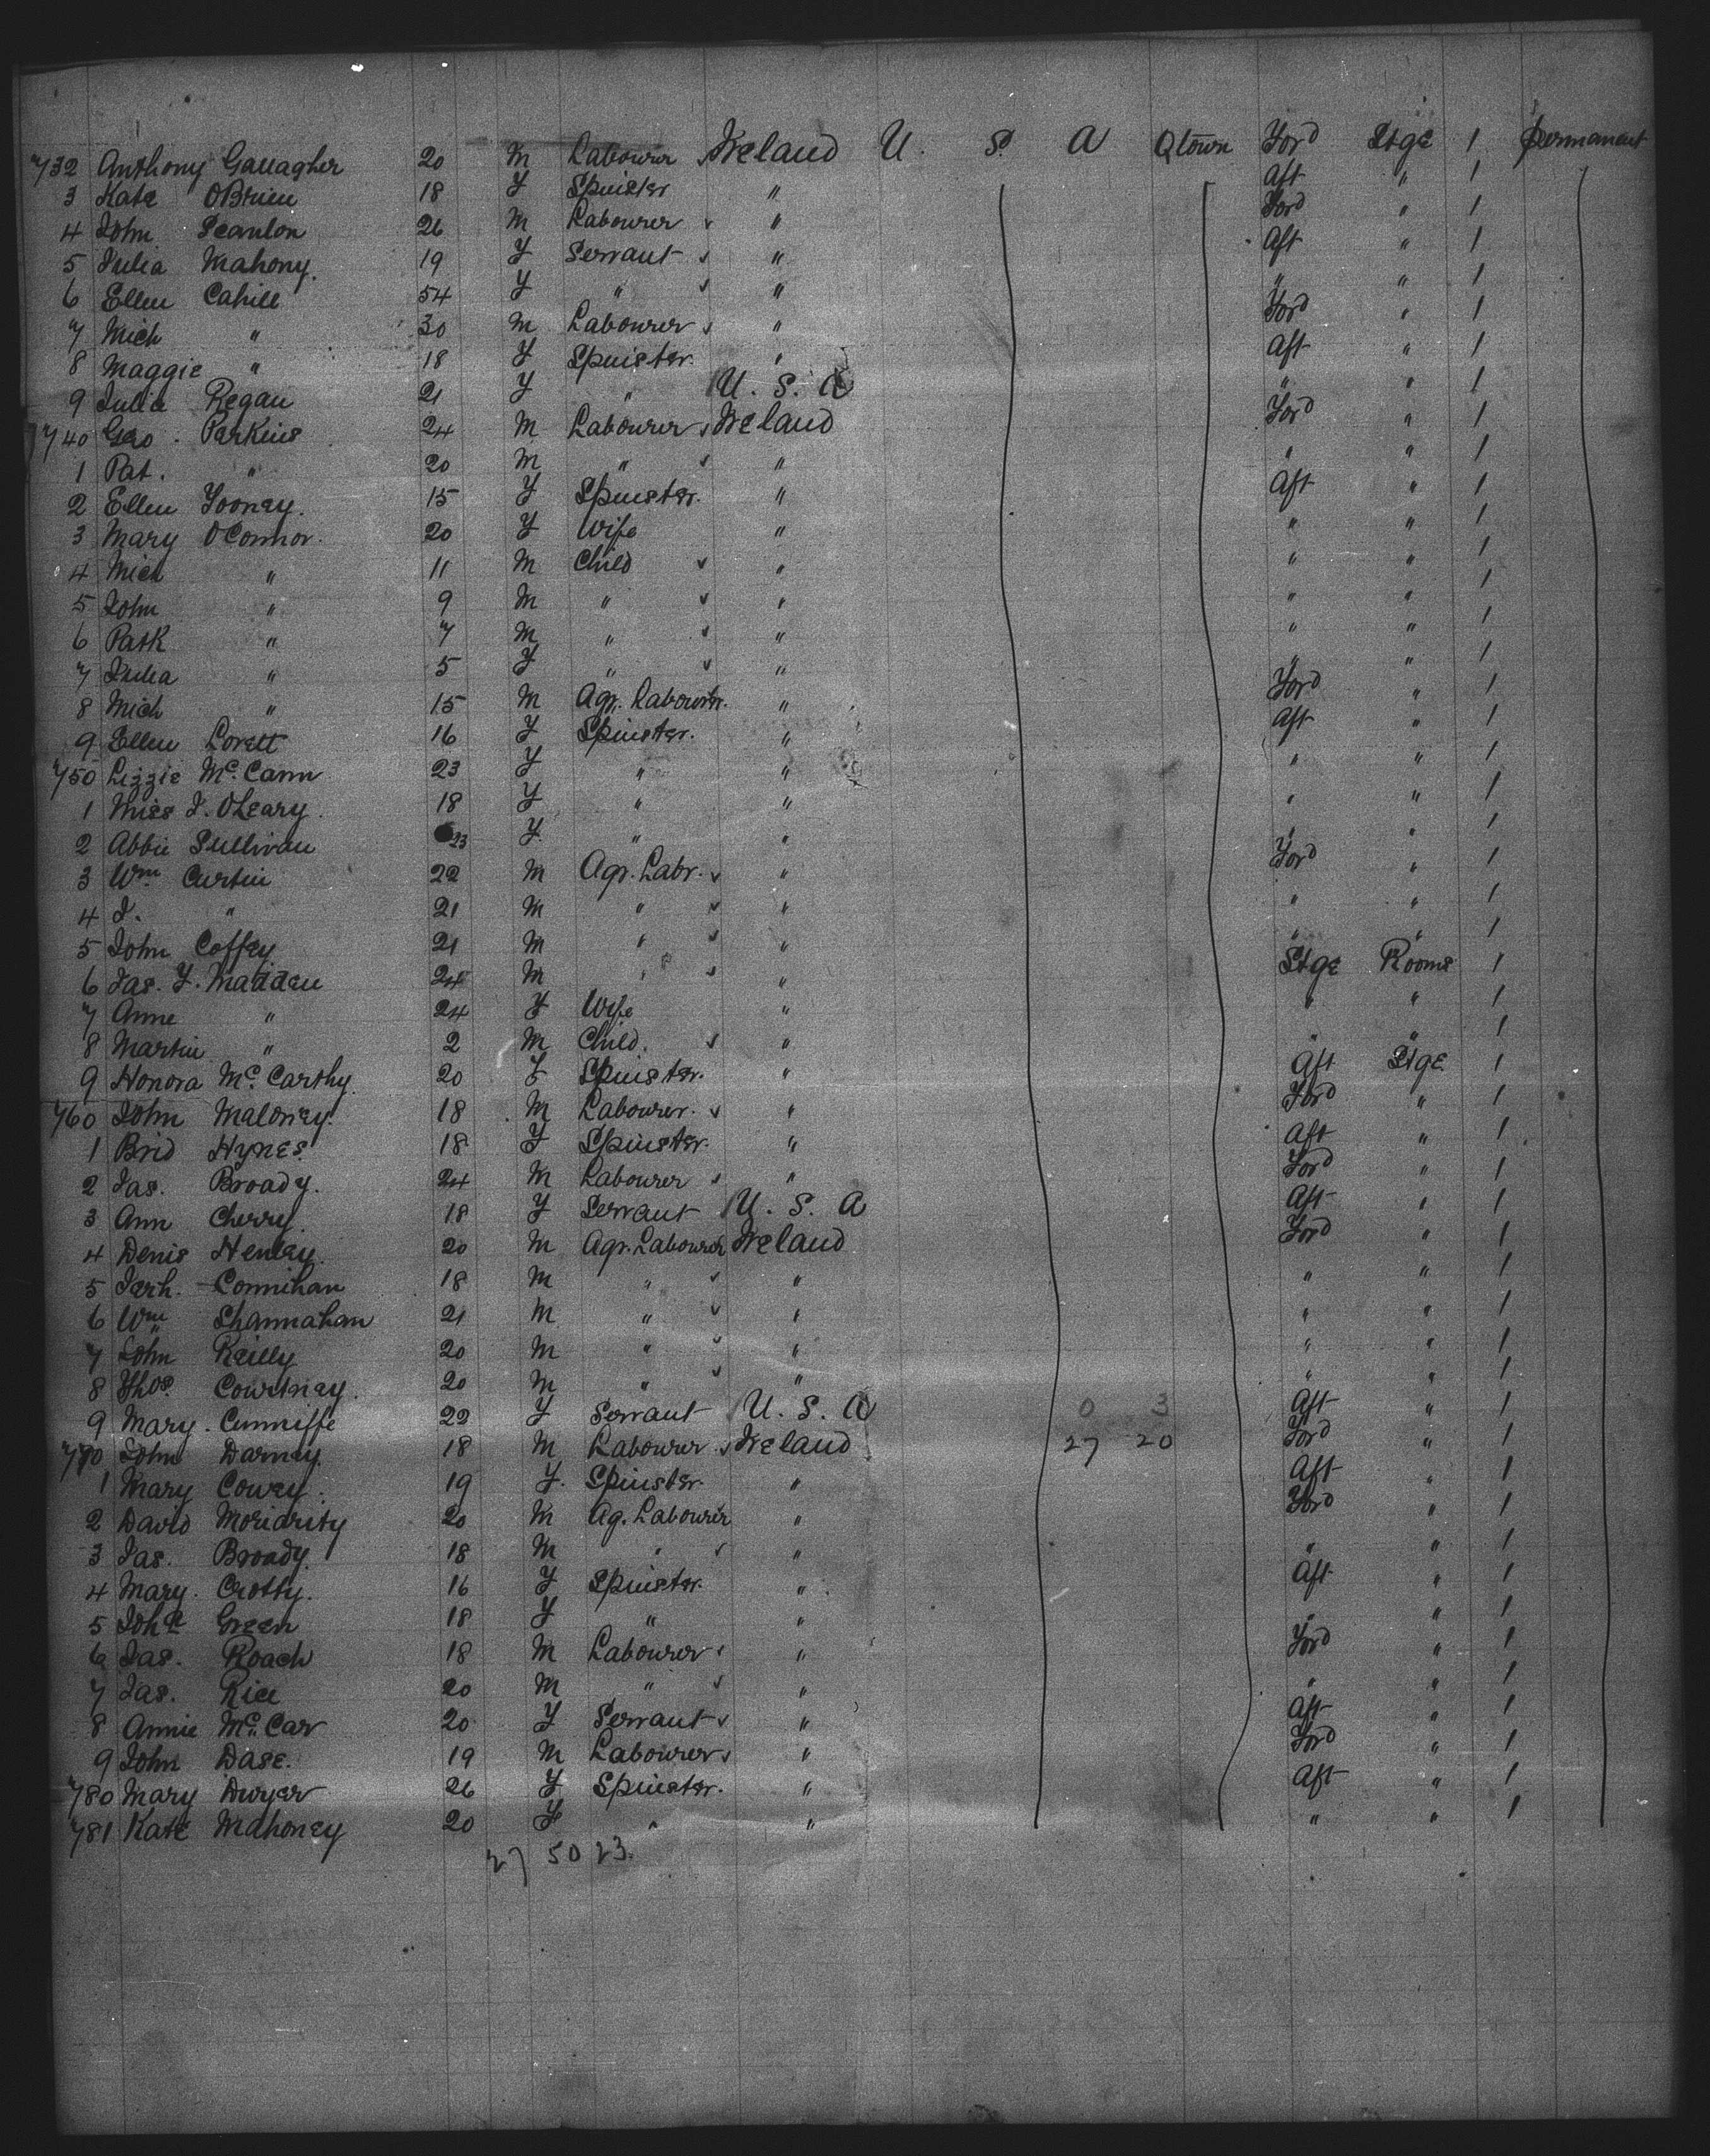 732 Anthony Gallagher 20 M Labourer Ireland U. S. A Qtown Ford Stge 1 permanent
3 Kate OBrien 18 F Spinster " Aft " 1
4 John Scanlon 26 M Labourer " Ford " 1
5 Julia Mahony. 19 F Servant " Aft " 1
6 Ellen Cahill 54 F " " " " 1
7 Mich " 30 M Labourer " Ford " 1
8 Maggie " 18 F Spinster. " Aft " 1
9 Julia Regan 21 F " U. S. A " " 1
740 Geo. Parkins 24 M Labourer Ireland Ford " 1
1 Pat. " 20 M " " " " 1
2 Ellen Tooney. 15 F Spinster. " Aft " 1
3 Mary OConnor. 20 F Wife " " " 1
4 Mich " 11 M Child " " " 1
5 John " 9 M " " " " 1
6 Patk " 7 M " " " " 1
7 Julia " 5 F " " " " 1
8 Mich " 15 M Agr. Labourer. " Ford " 1
9 Ellen Lovett 16 F Spinster. " Aft " 1
750 Lizzie Mc. Cann 23 F " " " " 1
1 Miss J. OLeary. 18 F " " " " 1
2 Abbie Sullivan 23 F. " " " " 1
3 Wm Curtin 22 M Agr. Labr. " Ford " 1
4 J. " 21 M " " " " 1
5 John Coffey 21 M " " " " 1
6 Jas. F. Madden 24 M " " Stge Rooms 1
7 Anne " 24 F Wife " " " 1
8 Martin " 2 M Child. " " " 1
9 Honora Mc. Carthy. 20 F Spinster. " Aft Stge 1
760 John Maloney. 18 M Labourer. " Ford " 1
1 Brid Hynes. 18 F Spinster. " Aft " 1
2 Jas. Broady. 24 M Labourer " Ford " 1
3 Ann Cherry. 18 F Servant U. S. A Aft " 1
4 Denis Henley. 20 M Agr. Labourer Ireland Ford " 1
5 Jerh. Connihan 18 M " " " " 1
6 Wm Shannahan 21 M " " " " 1
7 John Reilly 20 M " " " " 1
8 Thos. Courtney. 20 M " " " " 1
9 Mary. Cunniffe 22 F Servant U. S. A 0 3 Aft " 1
770 John Darney. 18 M Labourer Ireland 27 20 Ford " 1
1 Mary Covey. 19 F. Spinster. " Aft " 1
2 David Moriarity 20 M Ag. Labourer " Ford " 1
3 Jas. Broady. 18 M " " " " 1
4 Mary. Crotty. 16 F Spinster. " Aft " 1
5 Green 18 F " " " " 1
6 Jas. Roach 18 M Labourer " Ford " 1
7 Jas. Rice 20 M " " " " 1
8 Annie Mc. Car 20 F Servant " Aft " 1
9 John Dase. 19 M Labourer " Ford " 1
780 Mary Dwyer 26 F Spinster. " Aft " 1
781 Kate Mahoney 20 F " " " " 1
27 50 23.